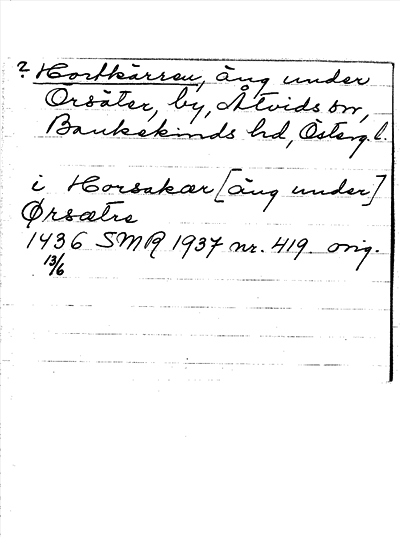 ? Hortkärren, äng under
Orsäter, by, Åtvids sn,
Bankekinds hd, Österg. l.
i Horsakær [äng under]
Ørsætre
1436 SMR 1937 nr. 419. orig.
13/6